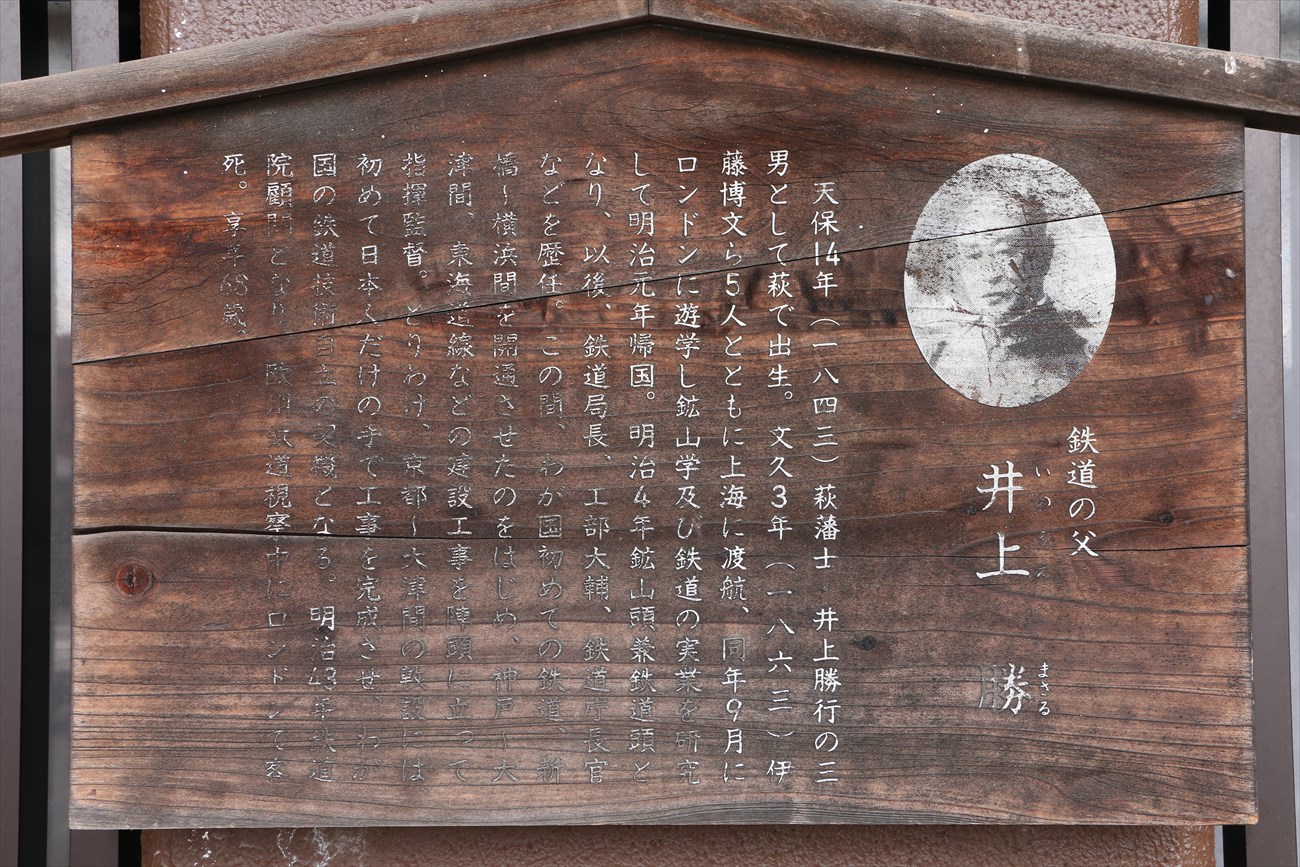 鉄道の父
いのうえ
井上
まさる
勝
天保14年（一八四三）萩藩士 井上勝行の三
男として萩で出生。文久3年（一八六三）伊
藤博文ら5人とともに上海に渡航、同年9月に
ロンドンに遊学し鉱山学及び鉄道の実業を研究
して明治元年帰国。明治4年鉱山頭兼鉄道頭と
なり、以後、鉄道局長、工部大輔、鉄道庁長官
などを歴任。この間、わが国初めての鉄道、新
橋〜横浜間を開通させたのをはじめ、神戸〜大
津間、東海道線などの建設工事を陣頭に立って
指揮監督。とりわけ、京都〜大津間の敷設には
初めて日本人だけの手で工事を完成させ、わが
国の鉄道技術自立の契機となる。明治43年鉄道
院顧問となり、欧州鉄道視察中にロンドンで客
死。享年68歳。